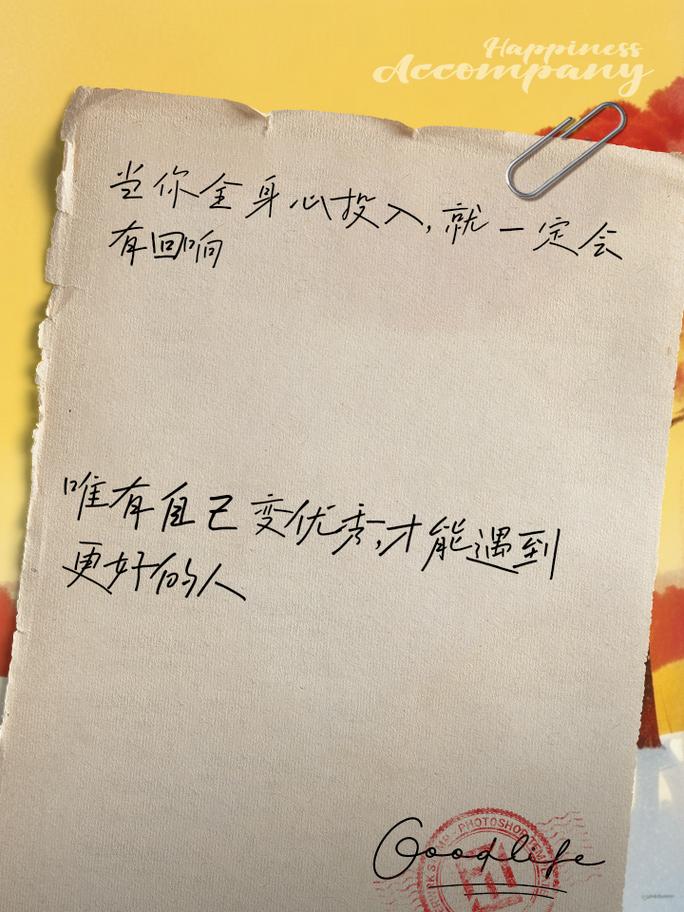 Happiness
Accompany
当你全身心投入,就一定会
有回响
唯有自己变优秀,才能遇到
更好的人
PHOTOSHOP
Goodlife